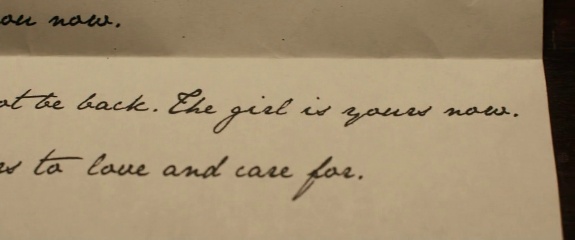 ou now.
ot be back. The girl is yours now.
rs to love and care for.